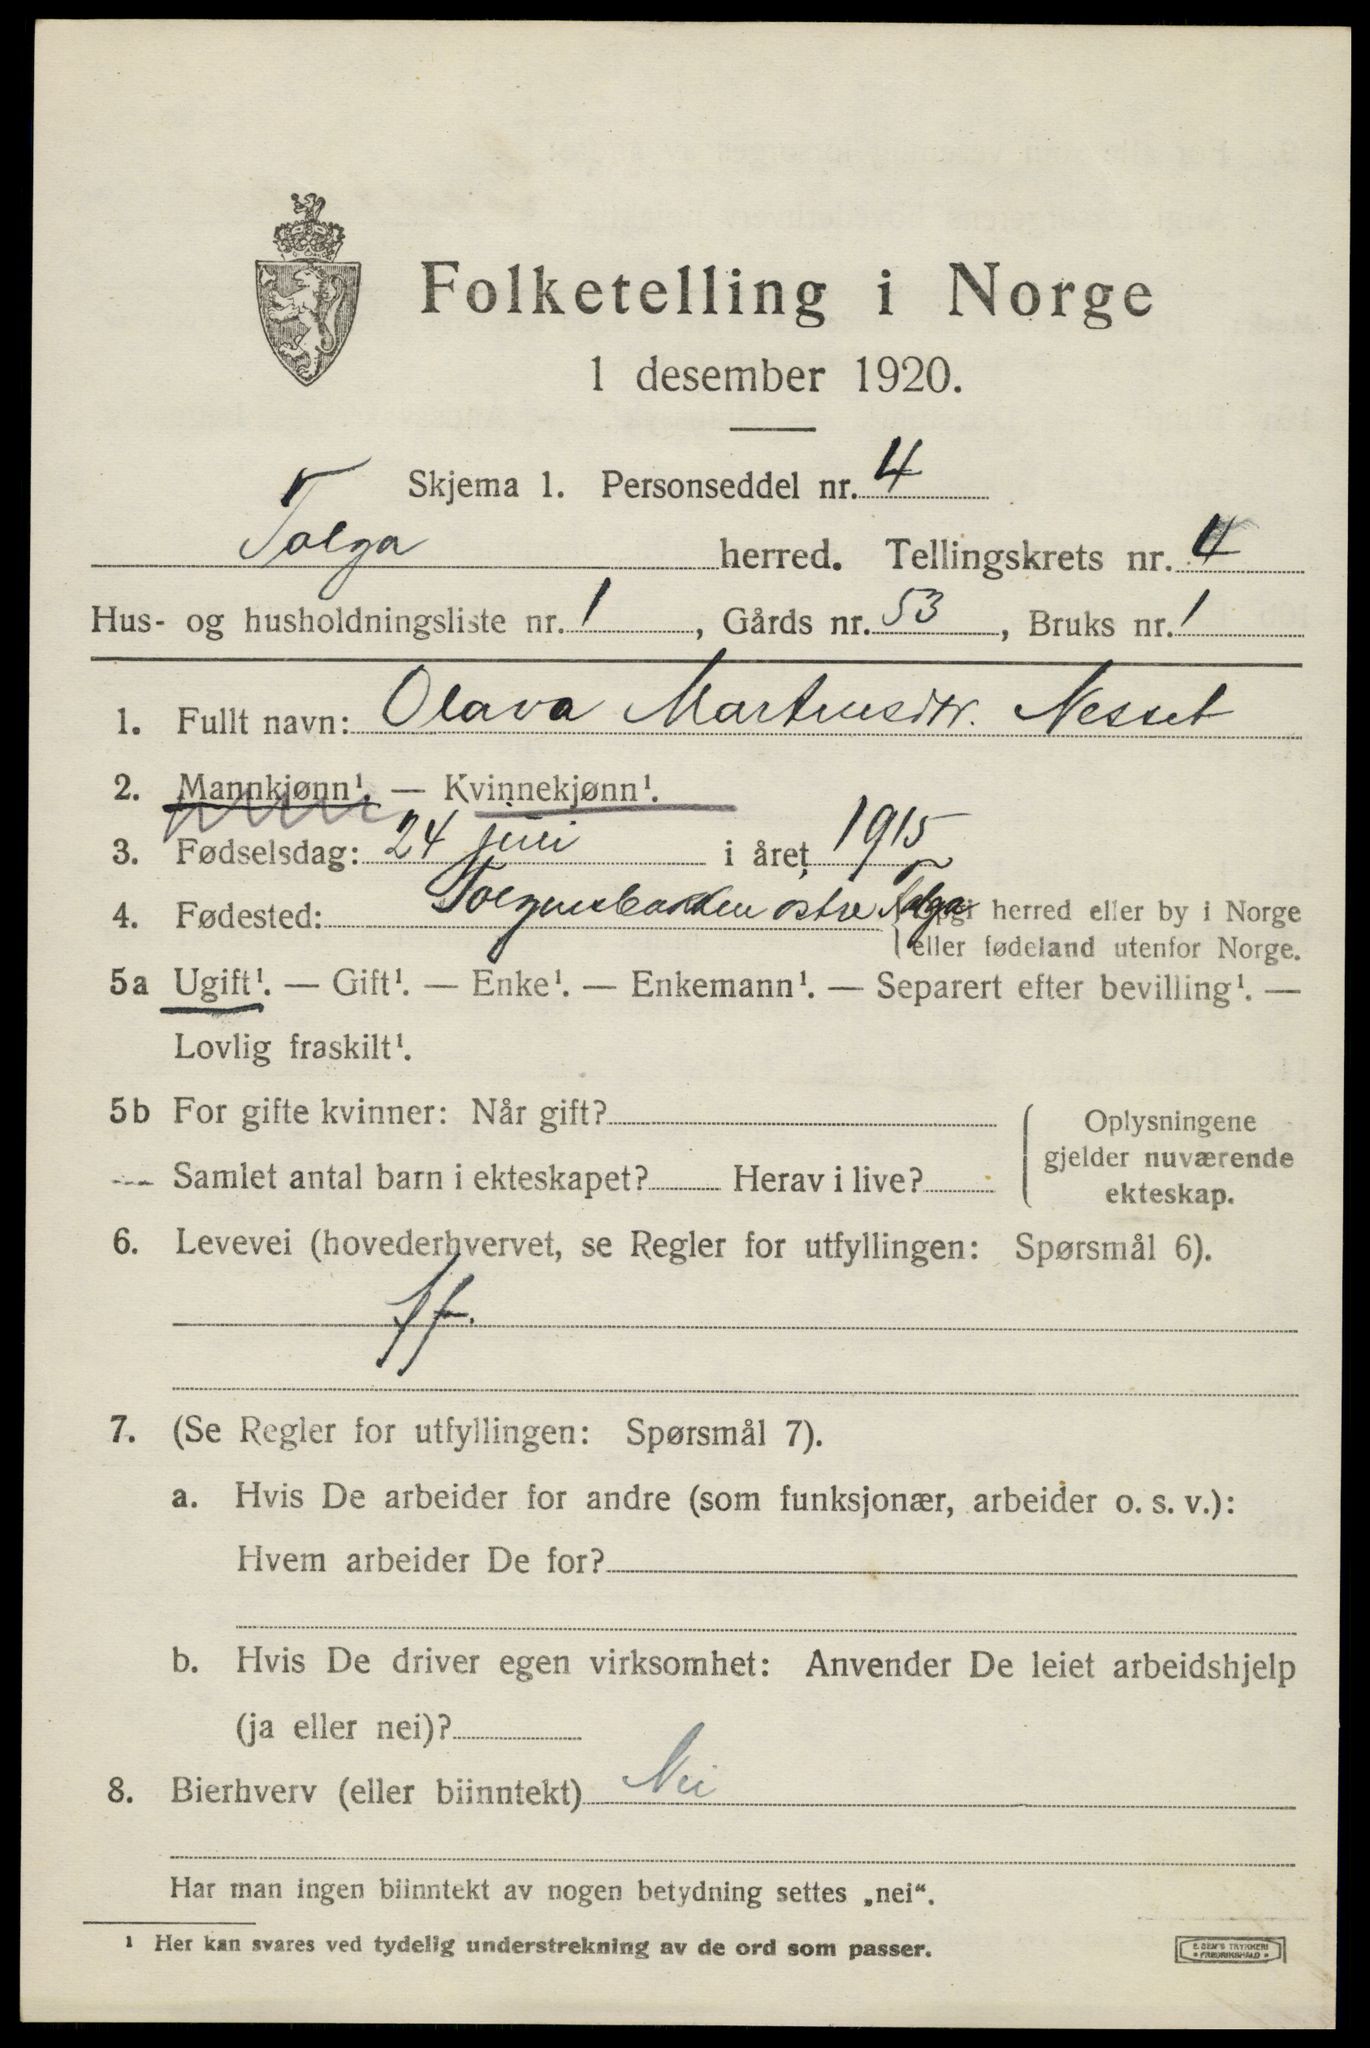 Folketelling i Norge
1 desember 1920.
Skjema 1. Personseddel nr. 4
Tolga herred. Tellingskrets nr. 4
Hus- og husholdningsliste nr. 1, Gårds nr. 53, Bruks nr. 1
1. Fullt navn: Olava Martinusdtr. Nesset
2. Mannkjønn¹. — Kvinnekjønn¹.
3. Fødselsdag: 24 juni i året 1915
4. Fødested: østre Tolga {Opgi herred eller by i Norge
eller fødeland utenfor Norge.
5a Ugift¹. — Gift¹. — Enke¹. — Enkemann¹. — Separert efter bevilling¹. —
Lovlig fraskilt¹.
5b For gifte kvinner: Når gift? Oplysningene
gjelder nuværende
Samlet antal barn i ekteskapet? Herav i live? ekteskap.
6. Levevei (hovederhvervet, se Regler for utfyllingen: Spørsmål 6).
ff.
7. (Se Regler for utfyllingen: Spørsmål 7).
a. Hvis De arbeider for andre (som funksjonær, arbeider o. s. v.):
Hvem arbeider De for?
b. Hvis De driver egen virksomhet: Anvender De leiet arbeidshjelp
(ja eller nei)?
8. Bierhverv (eller biinntekt) Nei
Har man ingen biinntekt av nogen betydning settes „nei“.
¹ Her kan svares ved tydelig understrekning av de ord som passer.
E. SEM'S TRYKKERI
• FREDRIKSHALD •